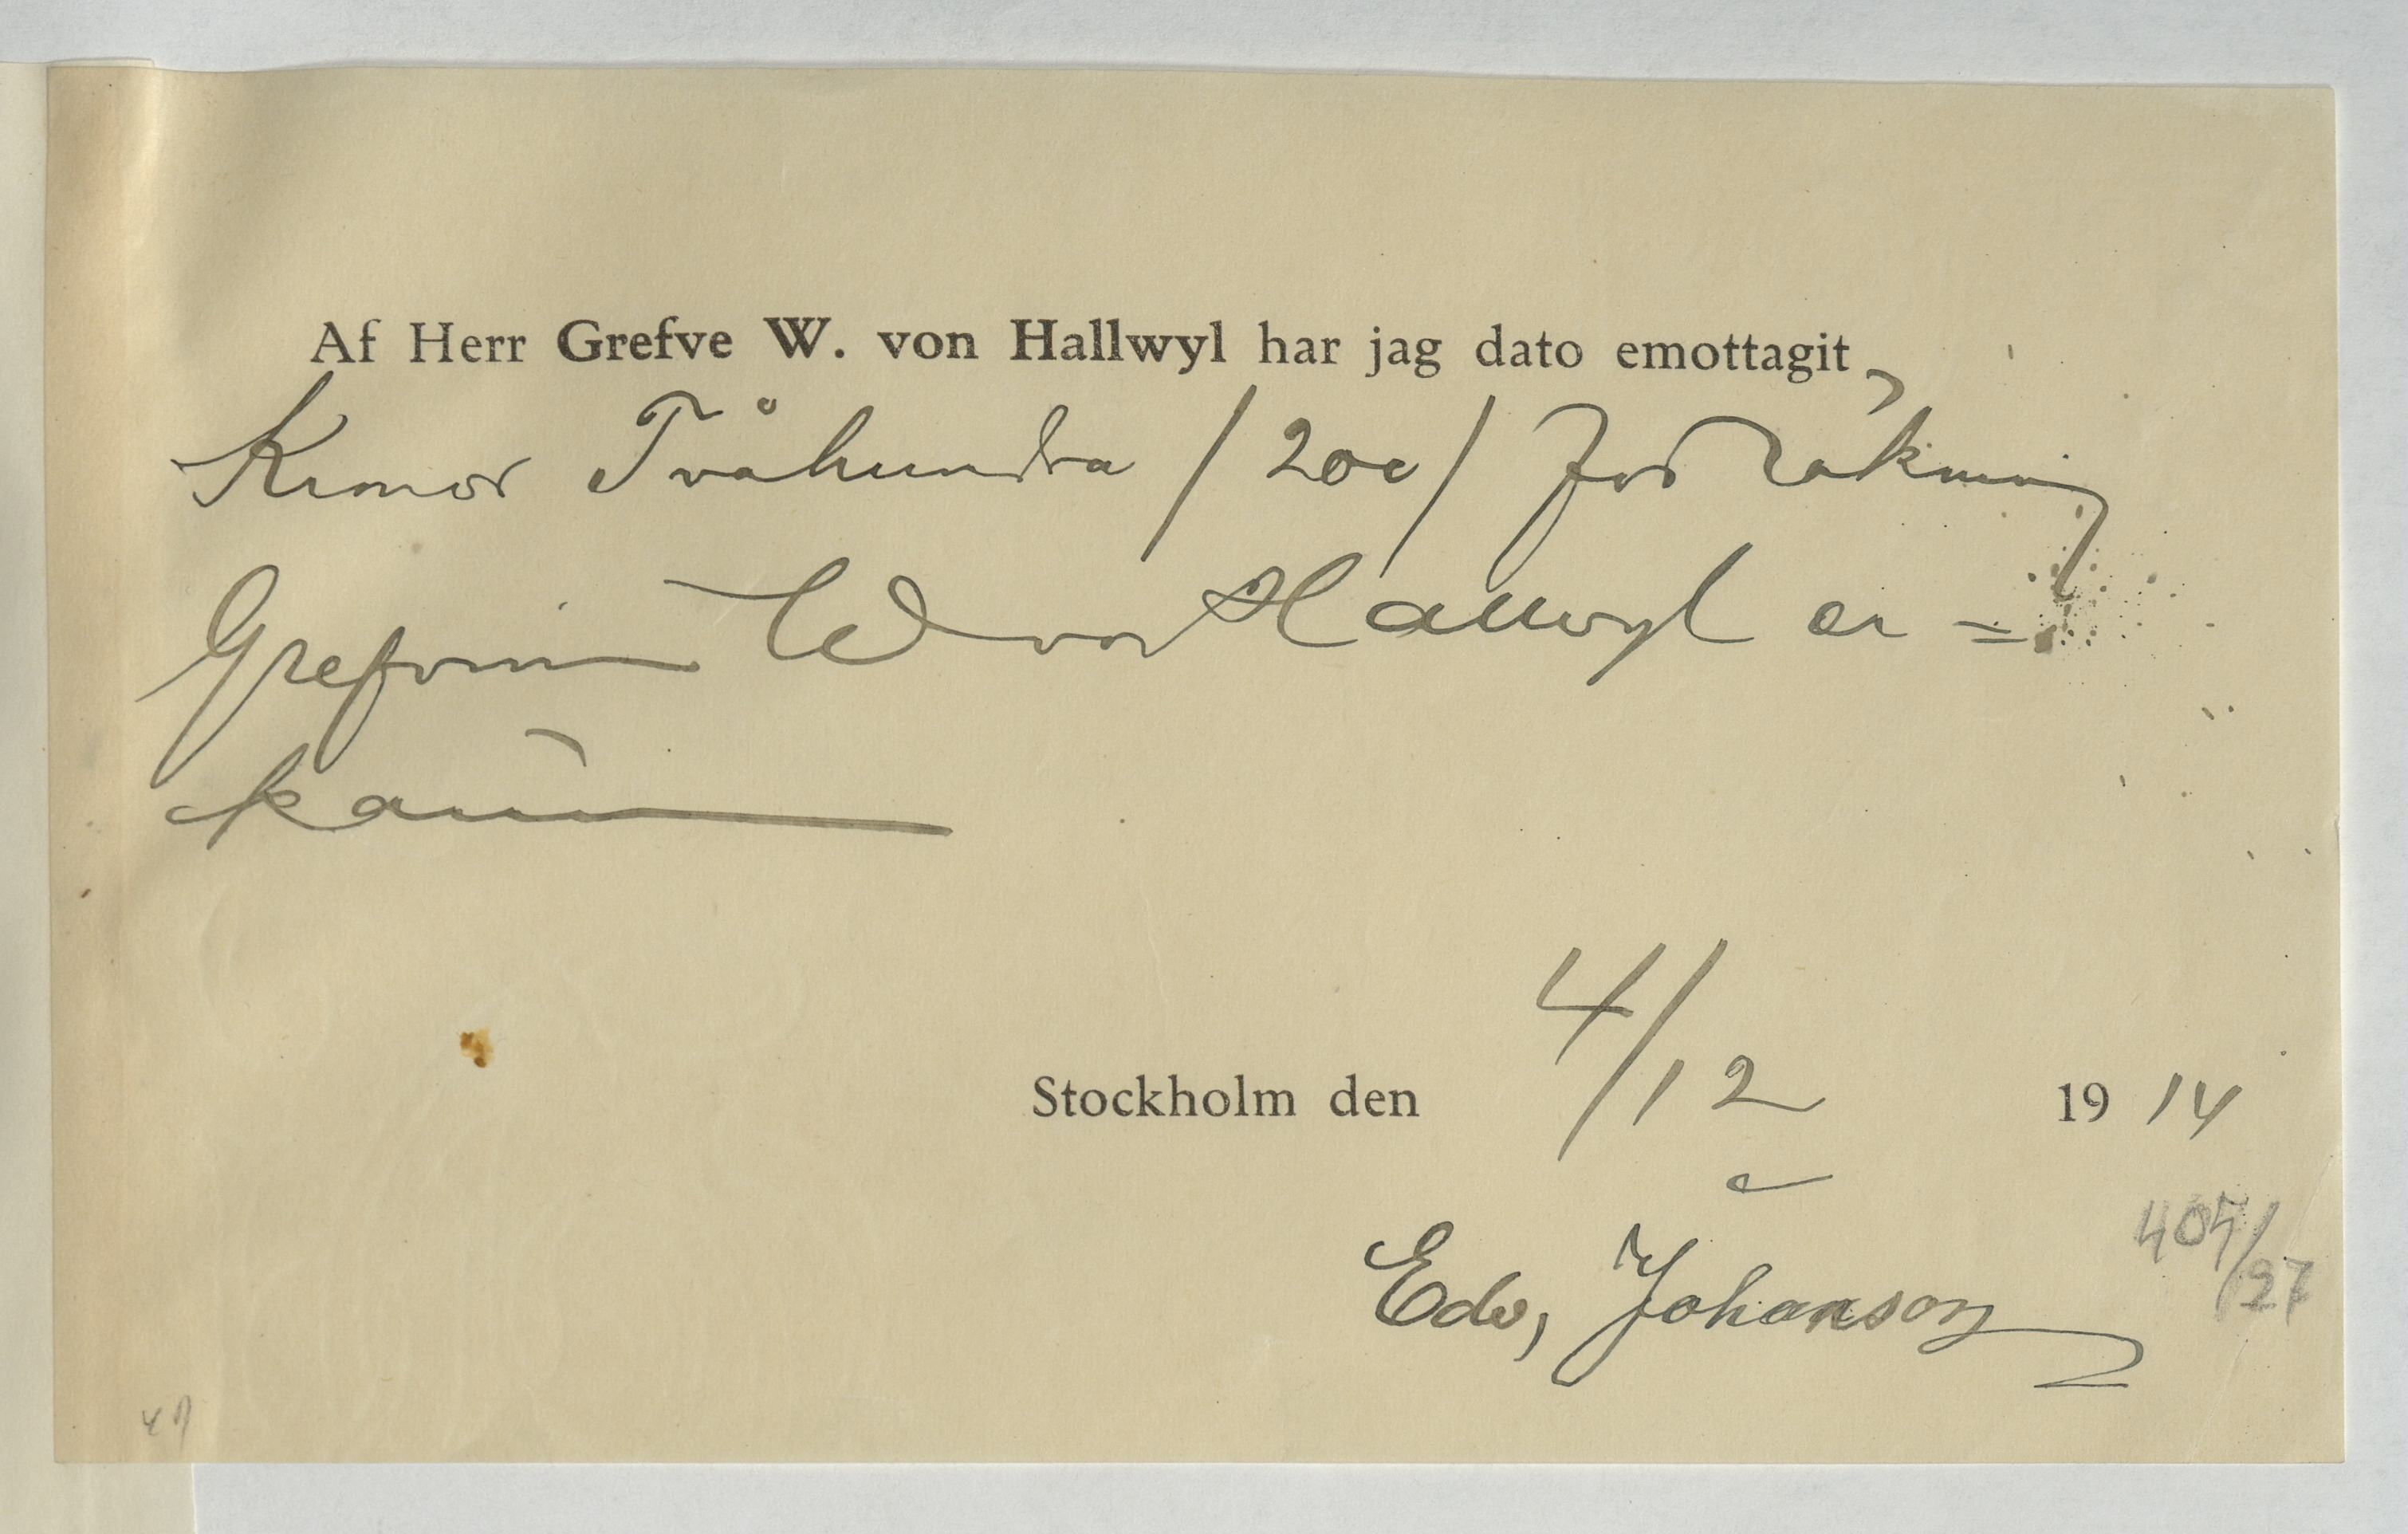 Af Herr Grefve W. von Hallwyl har jag dato emottagit
Kronor Tvåhundra /200/ för räkning
Grefvinn W von Hallwyl er=
kännes
Stockholm den 4/12 1914
Edv, Johanson